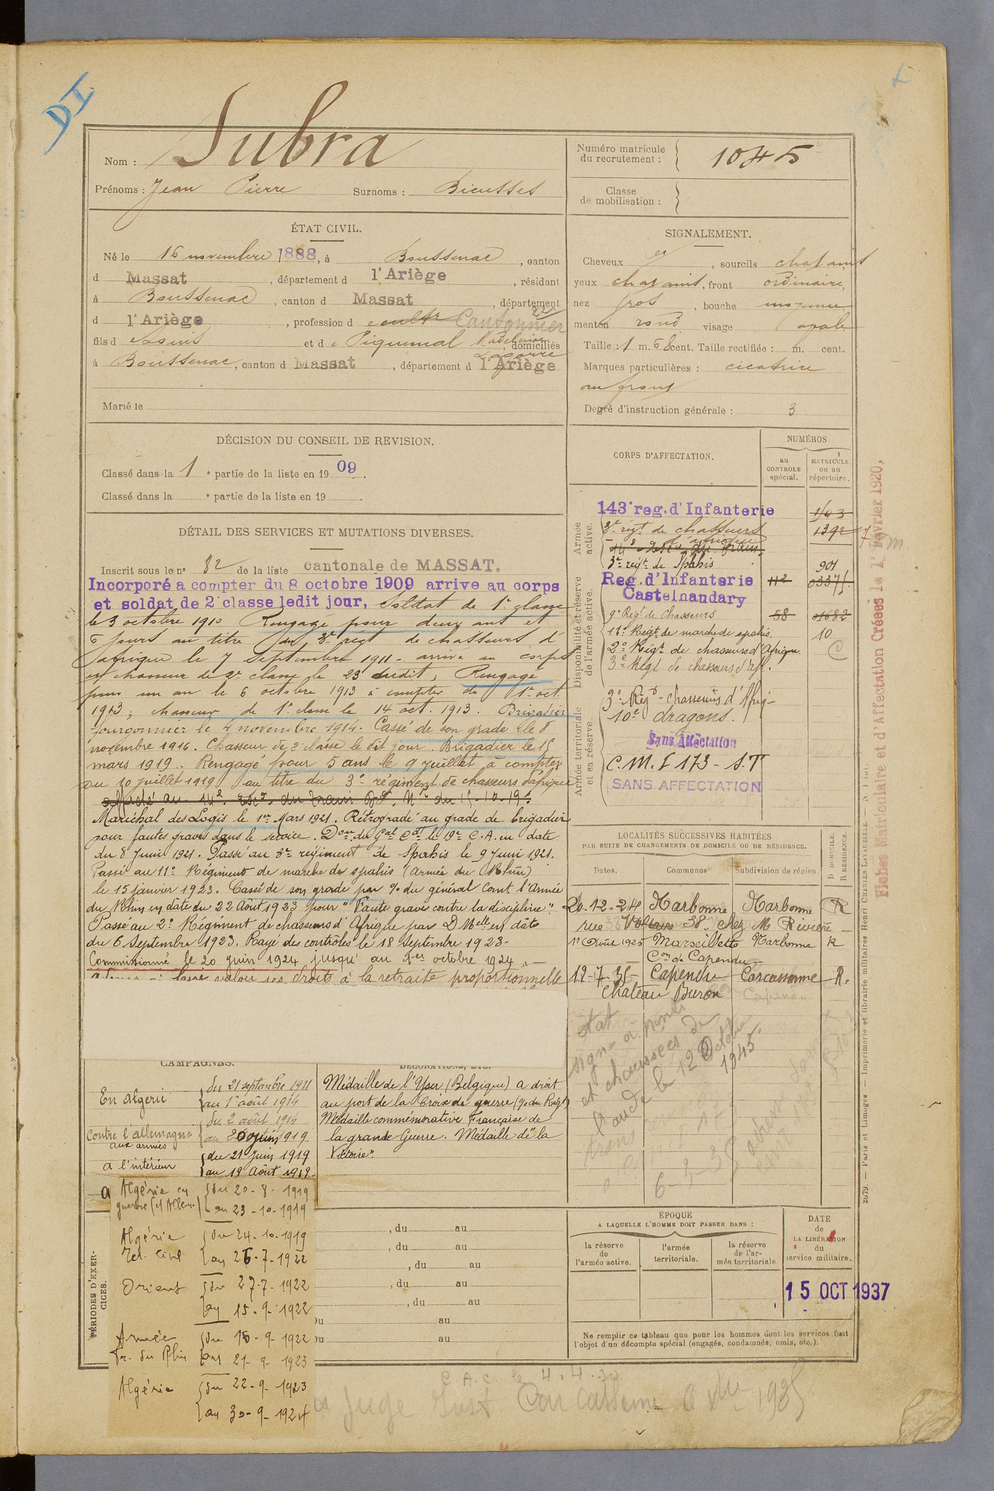 DI
Nom : Subra
Prénoms : Jean Pierre Surnoms : Bicusses
Numéro matricule du recrutement : 1045
Classe de mobilisation :
ÉTAT CIVIL.
Né le 16 novembre 1888, à Boussenac, canton
d Massat, département d l'Ariège, résidant
à Boussenac, canton d Massat, département
d l'Ariège, profession d cultr Cantonnier
fils d et d e Piquemal Madeleine, domiciliés
à Boussenac, canton d Massat, département d l'Ariège
Marié le
SIGNALEMENT.
Cheveux , sourcils chatains
yeux chatains, front ordinaire,
nez gros, bouche moyenne
menton rond visage ovale
Taille : 1 m. 68 cent. Taille rectifiée : m. cent.
Marques particulières : cicatrice
au front
Degré d'instruction générale : 3
DÉCISION DU CONSEIL DE REVISION.
Classé dans la 1 e partie de la liste en 1909.
Classé dans la e partie de la liste en 19
DÉTAIL DES SERVICES ET MUTATIONS DIVERSES.
Inscrit sous le n° 82 de la liste cantonale de MASSAT.
Incorporé a compter du 8 octobre 1909 arrive au corps
et soldat de 2e classe ledit jour, Soldat de 1e classe
le 3 octobre 1910 Rengagé pour deux ans et
6 jours au titre du 3e régt de chasseurs d'
afrique le 7 Septembre 1911 - arrivé au corps
et chasseur de 2e classe le 23 dudit, Rengagé
pour un an le 6 octobre 1913 à compter du 1er oct
1913, chasseur de 1e classe le 14 oct. 1913. Brigadier
fourgonnier le 4 novembre 1914. Cassé de son grade le 8
novembre 1916. Chasseur de 2e classe le dit jour. Brigadier le 15
mars 1919. Rengagé pour 5 ans le 9 juillet à compter
du 10 juillet 1919 au titre du 3e régiment de chasseurs d'afrique
Maréchal des Logis le 1er Mars 1921. Rétrogradé au grade de brigadier
pour fautes graves dans le service. Don du Gal Ct le 19e C.A. en date
du 8 Juin 1921. Passé au 3e régiment de Spahis le 9 Juin 1921.
Passé au 11e Régiment de marche de spahis (Armée du Rhin)
le 15 janvier 1923. Cassé de son grade par Don du général Comt l'Armée
du Rhin en date du 22 Août 1923 pour "Faute grave contre la discipline".
Passé au 2e Régiment de chasseurs d'Afrique par D Melle en date
du 6 Septembre 1923. Rayé des contrôles le 18 Septembre 1923-
Commissionné le 20 juin 1924 jusqu'au 1er octobre 1924 -
faire valoir ses droits à la retraite proportionnelle
CORPS D'AFFECTATION.
NUMÉROS
au CONTROLE spécial.
MATRICULE ou au répertoire.
Armée active.
143e reg. d'Infanterie 143
3e régt de chasseurs d'afrique 1392
3e régt de Spahis 901
Disponibilité et réserve de l'armée active.
Reg. d'Infanterie
Castelnaudary
9e Régt de Chasseurs 58
11e Régt de marche de spahis. 10
2e Régt de chasseurs d'Afrique C
3e Régt de chasseurs d'Af.
Armée territoriale et sa réserve.
3e Régt chasseurs d'Afriq-
10e dragons.
Sans Affectation
C.M.I 173 - S.T
SANS AFFECTATION
Fiches Matriculaire et d'Affectation Créées le 1er Février 1920.
LOCALITÉS SUCCESSIVES HABITÉES
PAR SUITE DE CHANGEMENTS DE DOMICILE OU DE RÉSIDENCE.
Dates. Communes Subdivision de région. D. DOMICILE. R. RÉSIDENCE.
20-12-24 Narbonne Narbonne R
rue Voltaire 38 chez M Rivière
11 Août 1925 Marseillette Narbonne R
Con de Capendu
12-7-35- Capendu Carcassonne R.
Château Buron
et chaussées de
l'aude le 12 Octobre
1945
6-9-35
CAMPAGNES.
En Algérie du 21 septembre 1911
au 1er août 1914
Contre l'allemagne du 2 août 1914
aux armées au 20 juin 1919.
à l'intérieur du 21 juin 1919
au 19 Août 1919.
Algérie en du 20-8-1919
guerre (et Allem.) au 23-10-1919
Algérie du 24-10-1919
au 26-7-1922
Orient du 27-7-1922
au 15-9-1922
Armée du 16-9-1922
Fr. du Rhin au 21-9-1923
Algérie du 22-9-1923
au 30-9-1924
Médaille de l'Yser (Belgique) a droit
au port de la Croix de guerre
Médaille commémorative Française de
la grande Guerre. Médaille de la
Victoire.
PÉRIODES D'EXERCICES.
, du au
, du au
, du au
, du au
, du au
du au
du au
ÉPOQUE
A LAQUELLE L'HOMME DOIT PASSER DANS :
la réserve de l'armée active.
l'armée territoriale.
la réserve de l'armée territoriale
DATE de LA LIBÉRATION du service militaire.
15 OCT 1937
Ne remplir ce tableau que pour les hommes dont les services font
l'objet d'un décompte spécial (engagés, condamnés, omis, etc.).
2679. — Paris et Limoges. — Imprimerie et librairie militaires Henri CHARLES-LAVAUZELLE.
C.A.C le 4-4-34
Juge Inst. Carcassonne 1935